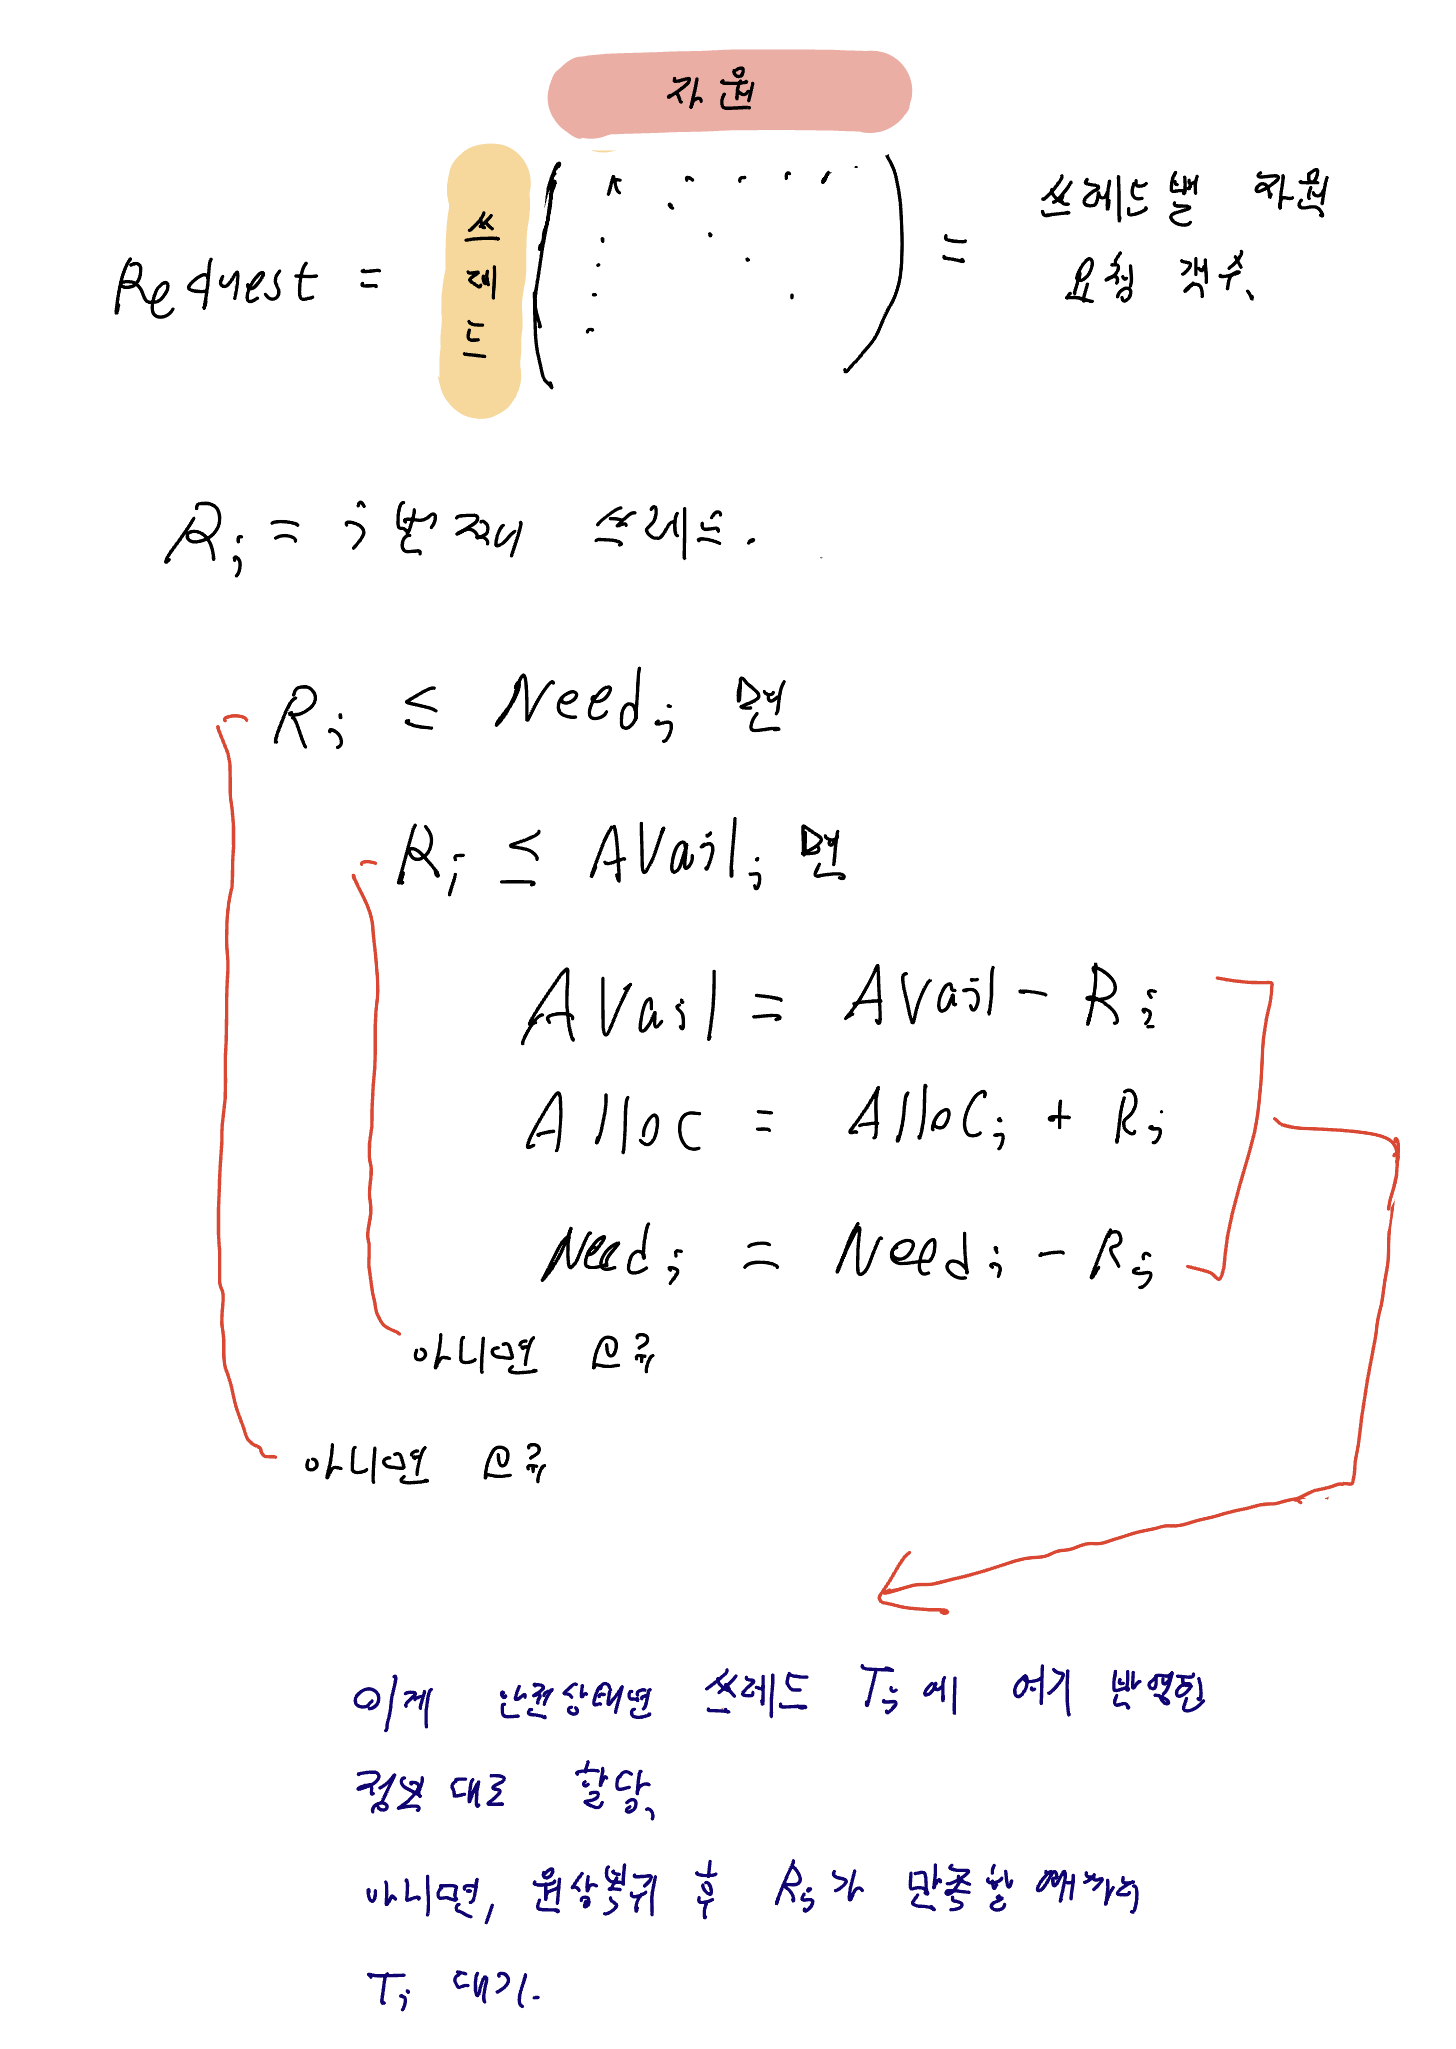 자원
쓰레드
Request = = 쓰레드별 자원
요청 갯수.
Ri = i번째 쓰레드.
Ri ≤ Needi 면
Ri ≤ AVaili 면
AVail = AVail - Ri
Alloc = Alloci + Ri
Needi = Needi - Ri
아니면 오류
아니면 오류
이게 안전상태면 쓰레드 Ti에 여기 반영된
정보대로 할당.
아니면, 원상복귀 후 Ri가 만족할때까지
Ti 대기.